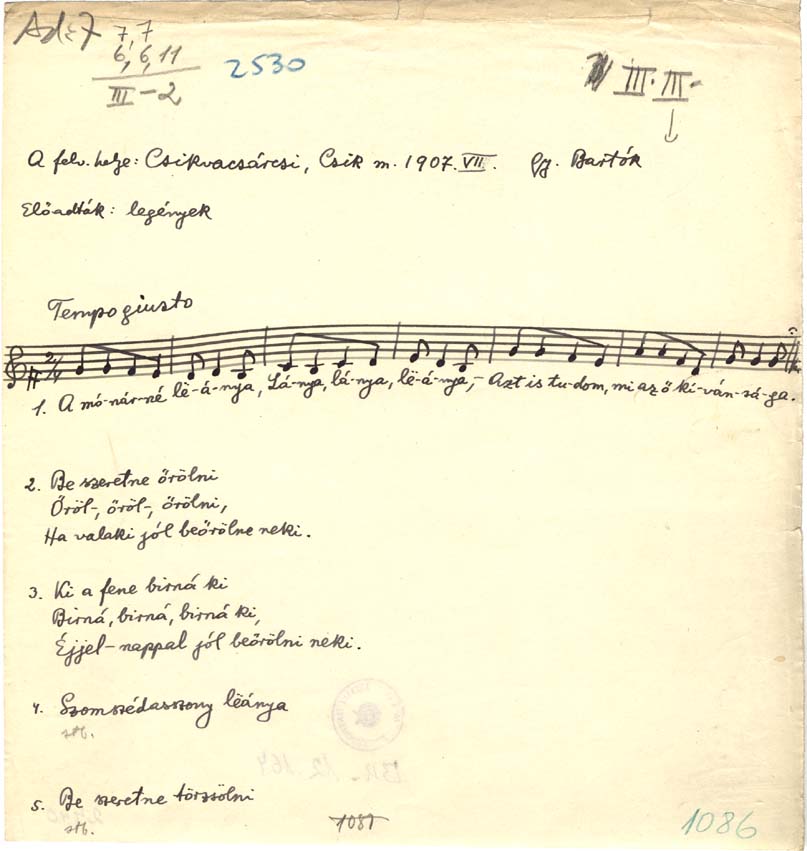 Ad: 7 7, 7
6, 6, 11
III – 2
2530
III. III.
A felv. helye: Csikvacsárcsi, Csik m. 1907. VII. Gy. Bartók
Előadták: legények
Tempo giusto
2/4
1. A mó-nár-né lë-á-nya, Lá-nya, lá-nya, lë-á-nya,- Azt is tu-dom, mi az ő kí-ván-sá-ga.
2. Be szeretne őrölni
Őröl-, őröl-, őrölni,
Ha valaki jól beőrölne neki.
3. Ki a fene birná ki
Birná, birná, birná ki,
Éjjel-nappal jól beőrölni neki.
4. Szomszédasszony lëánya
stb.
5. Be szeretne törzsölni
stb.
1087
1086